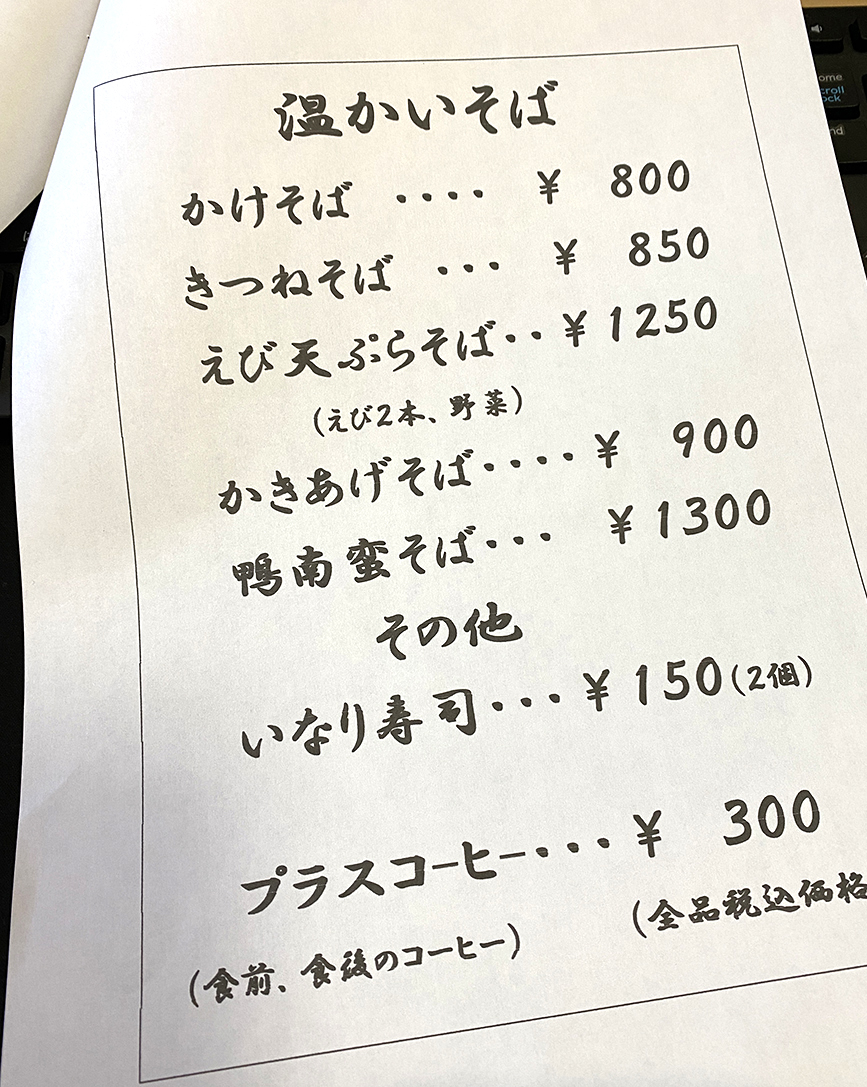 温かいそば
かけそば ････ ¥ 800
きつねそば ･･･ ¥ 850
えび天ぷらそば･･ ¥1250
(えび2本、野菜)
かきあげそば････ ¥ 900
鴨南蛮そば･･･ ¥1300
その他
いなり寿司･･･ ¥150(2個)
プラスコーヒー･･･ ¥ 300
(全品税込価格
(食前、食後のコーヒー)
ome
croll
ock
nd